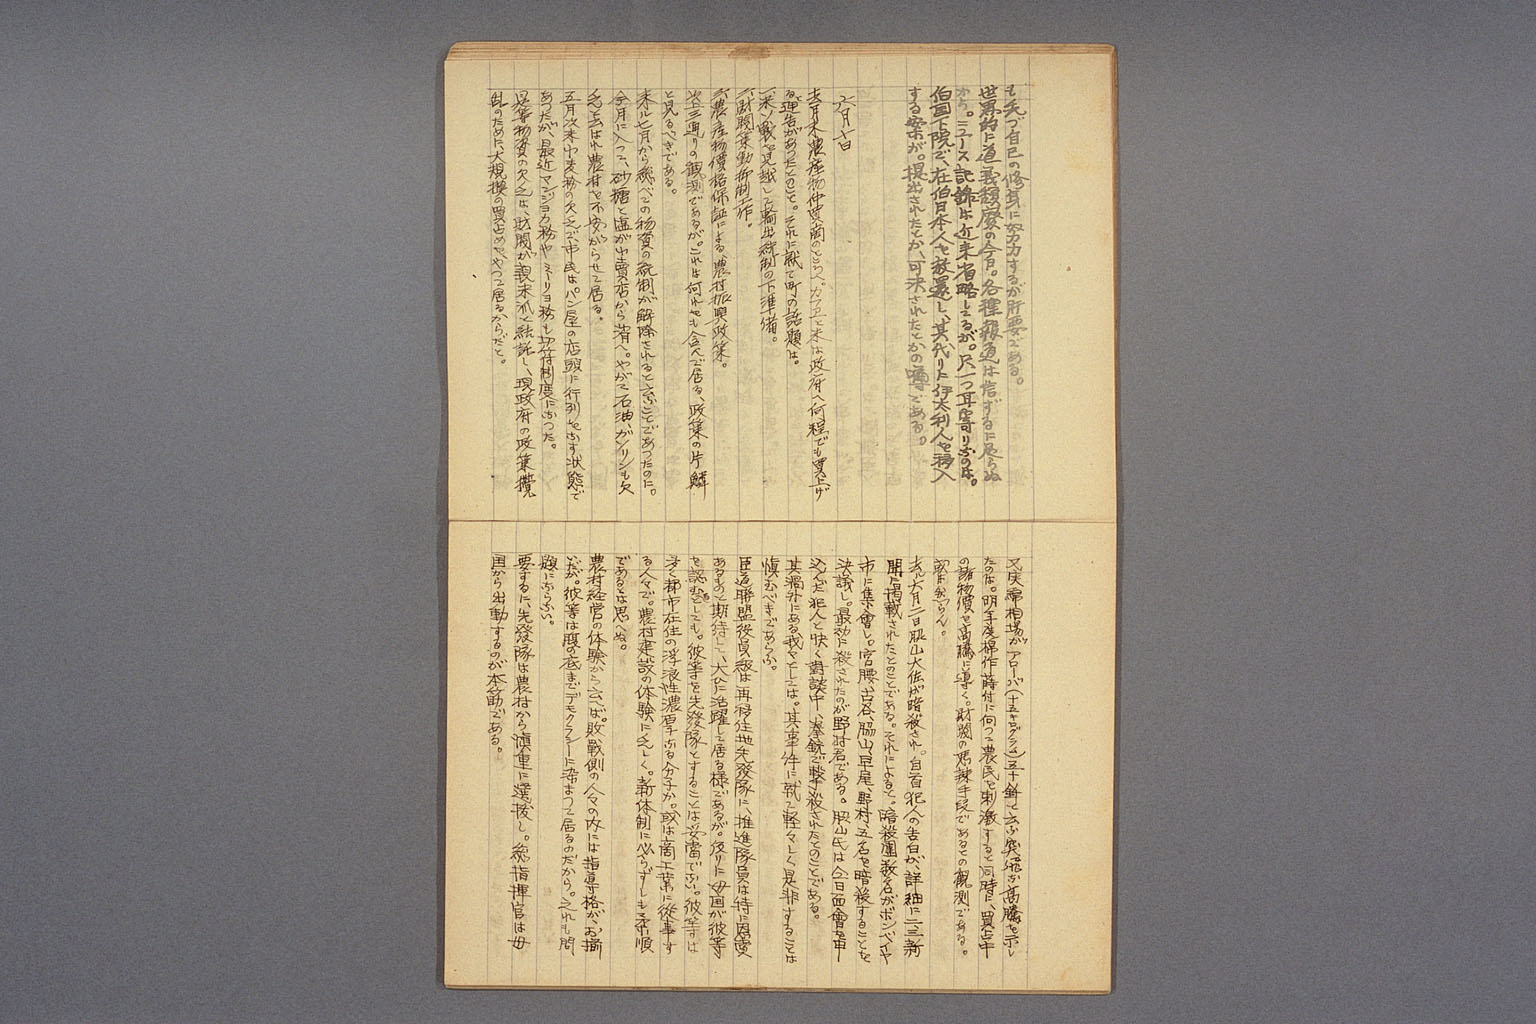 も先づ自己の修身に努力するが肝要である。
世界的に道義頽廃の今日。各種報道は信ずるに足らぬ
から。ニュース記録は近来省略しえるが。只一つ耳寄りなのは。
伯国下院で、在伯日本人を放還し、其代りに伊太利人を移入
する案が。提出されたとか、可決されたとかの噂である。
六月十日
去月末、農産物仲買商のところへ。カフエーと米は政府へ何程でも買上げ
る通告があったとのこと。それに就て町の話題は。
一、米ソ戦を見越して輸出統制の下準備。
二、財閥策動抑制工作。
三、農産物価格保証による、農村振興政策。
以上三通りの観測であるが。これは何れをも含んで居る、政策の片鱗
と見るべきである。
来ル七月から総べての物資の統制が解除されると云ふことであつたのに。
今月に入って、砂糖と塩が小売店から消へ。やがて石油、ガソリンも欠
乏云はれ農村を不安がらせて居る。
五月以来小麦粉の欠乏で、市民はパン屋の店頭に行列をなす状態で
あつたが、最近マンジョカ粉やミーリョ粉も切符制度になつた。
是等物資の欠乏は、財閥が親米派と結託し、現政府の政策攪
乱のために、大規模の買占めをやつて居るからだと。
又実棉相場が一アローバ(十五キログラム)五十針と云ふ突飛な高騰を示し
たのは。明年度棉作蒔付に向つて農民を刺激すると同時に、買占中
の諸物価を高騰に導く。財閥の悪辣手段であるとの観測である。
去ル六月二日脇山大佐が暗殺され。自首犯人の告白が、詳細に二三新
聞に掲載されたとのことである。それによると。暗殺団数名がボンペイヤ
市に集会し。宮腰、古谷、脇山、早尾、野村、五名を暗殺することを
決議し。最初に殺されたのが野村君である。脇山氏は今日面会を申
込んだ犯人と快く対談中、拳銃で撃殺されたとのことである。
其渦外にある我々としては。其事件に就て軽々しく是非することは
慎むべきであらふ。
臣道聯盟役員級は再移住地先発隊に、推進隊員は特に恩賞
あるものと期待して、大いに活躍して居る様であるが。仮りに母国が彼等
を認むるとしても。彼等を先発隊とすることは妥当でない。彼等は
多く都市在住の浮浪性濃厚なる分子か。或は商工業に従事す
る人々で。農村建設の体験に乏しく。新体制に必らずしも柔順
であるとは思へぬ。
農村経営の体験から云へば。敗戦側の人々の内には指導格が、お揃
いだが。彼等は腹の底までデモクラシーに染まつて居るのだから。之れも問
題にならない。
要するに、先発隊は農村から慎重に選抜し。総指揮官は母
国から出動するのが本筋である。